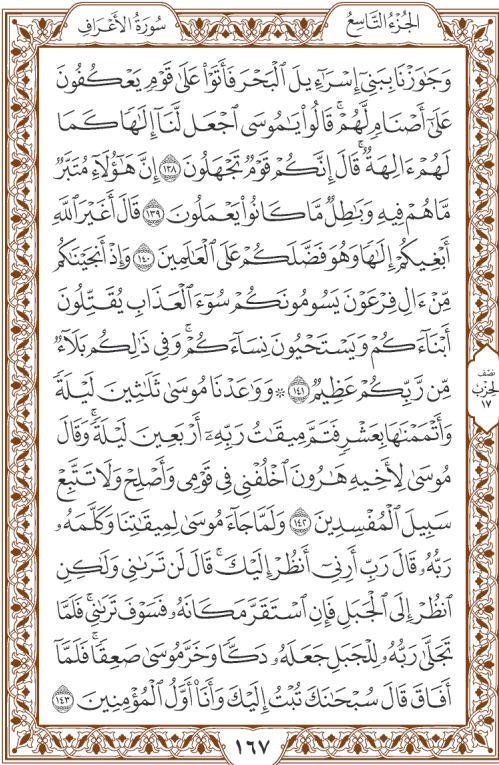 الجُزْءُ التَّاسِعُ
سُورَةُ الأَعْرَافِ
وَجَٰوَزْنَا بِبَنِىٓ إِسْرَٰٓءِيلَ ٱلْبَحْرَ فَأَتَوْا۟ عَلَىٰ قَوْمٍ يَعْكُفُونَ
عَلَىٰٓ أَصْنَامٍ لَّهُمْ ۚ قَالُوا۟ يَٰمُوسَى ٱجْعَل لَّنَآ إِلَٰهًا كَمَا
لَهُمْ ءَالِهَةٌ ۚ قَالَ إِنَّكُمْ قَوْمٌ تَجْهَلُونَ ١٣٨ إِنَّ هَٰٓؤُلَآءِ مُتَبَّرٌ
مَّا هُمْ فِيهِ وَبَٰطِلٌ مَّا كَانُوا۟ يَعْمَلُونَ ١٣٩ قَالَ أَغَيْرَ ٱللَّهِ
أَبْغِيكُمْ إِلَٰهًا وَهُوَ فَضَّلَكُمْ عَلَى ٱلْعَٰلَمِينَ ١٤٠ وَإِذْ أَنجَيْنَٰكُم
مِّنْ ءَالِ فِرْعَوْنَ يَسُومُونَكُمْ سُوٓءَ ٱلْعَذَابِ يُقَتِّلُونَ
أَبْنَآءَكُمْ وَيَسْتَحْيُونَ نِسَآءَكُمْ ۚ وَفِى ذَٰلِكُم بَلَآءٌ
مِّن رَّبِّكُمْ عَظِيمٌ ١٤١ ۞ وَوَٰعَدْنَا مُوسَىٰ ثَلَٰثِينَ لَيْلَةً
وَأَتْمَمْنَٰهَا بِعَشْرٍ فَتَمَّ مِيقَٰتُ رَبِّهِۦٓ أَرْبَعِينَ لَيْلَةً ۚ وَقَالَ
مُوسَىٰ لِأَخِيهِ هَٰرُونَ ٱخْلُفْنِى فِى قَوْمِى وَأَصْلِحْ وَلَا تَتَّبِعْ
سَبِيلَ ٱلْمُفْسِدِينَ ١٤٢ وَلَمَّا جَآءَ مُوسَىٰ لِمِيقَٰتِنَا وَكَلَّمَهُۥ
رَبُّهُۥ قَالَ رَبِّ أَرِنِىٓ أَنظُرْ إِلَيْكَ ۚ قَالَ لَن تَرَىٰنِى وَلَٰكِنِ
ٱنظُرْ إِلَى ٱلْجَبَلِ فَإِنِ ٱسْتَقَرَّ مَكَانَهُۥ فَسَوْفَ تَرَىٰنِى ۚ فَلَمَّا
تَجَلَّىٰ رَبُّهُۥ لِلْجَبَلِ جَعَلَهُۥ دَكًّا وَخَرَّ مُوسَىٰ صَعِقًا ۚ فَلَمَّآ
أَفَاقَ قَالَ سُبْحَٰنَكَ تُبْتُ إِلَيْكَ وَأَنَا۠ أَوَّلُ ٱلْمُؤْمِنِينَ ١٤٣
نِصْف
الحِزْب
١٧
١٦٧